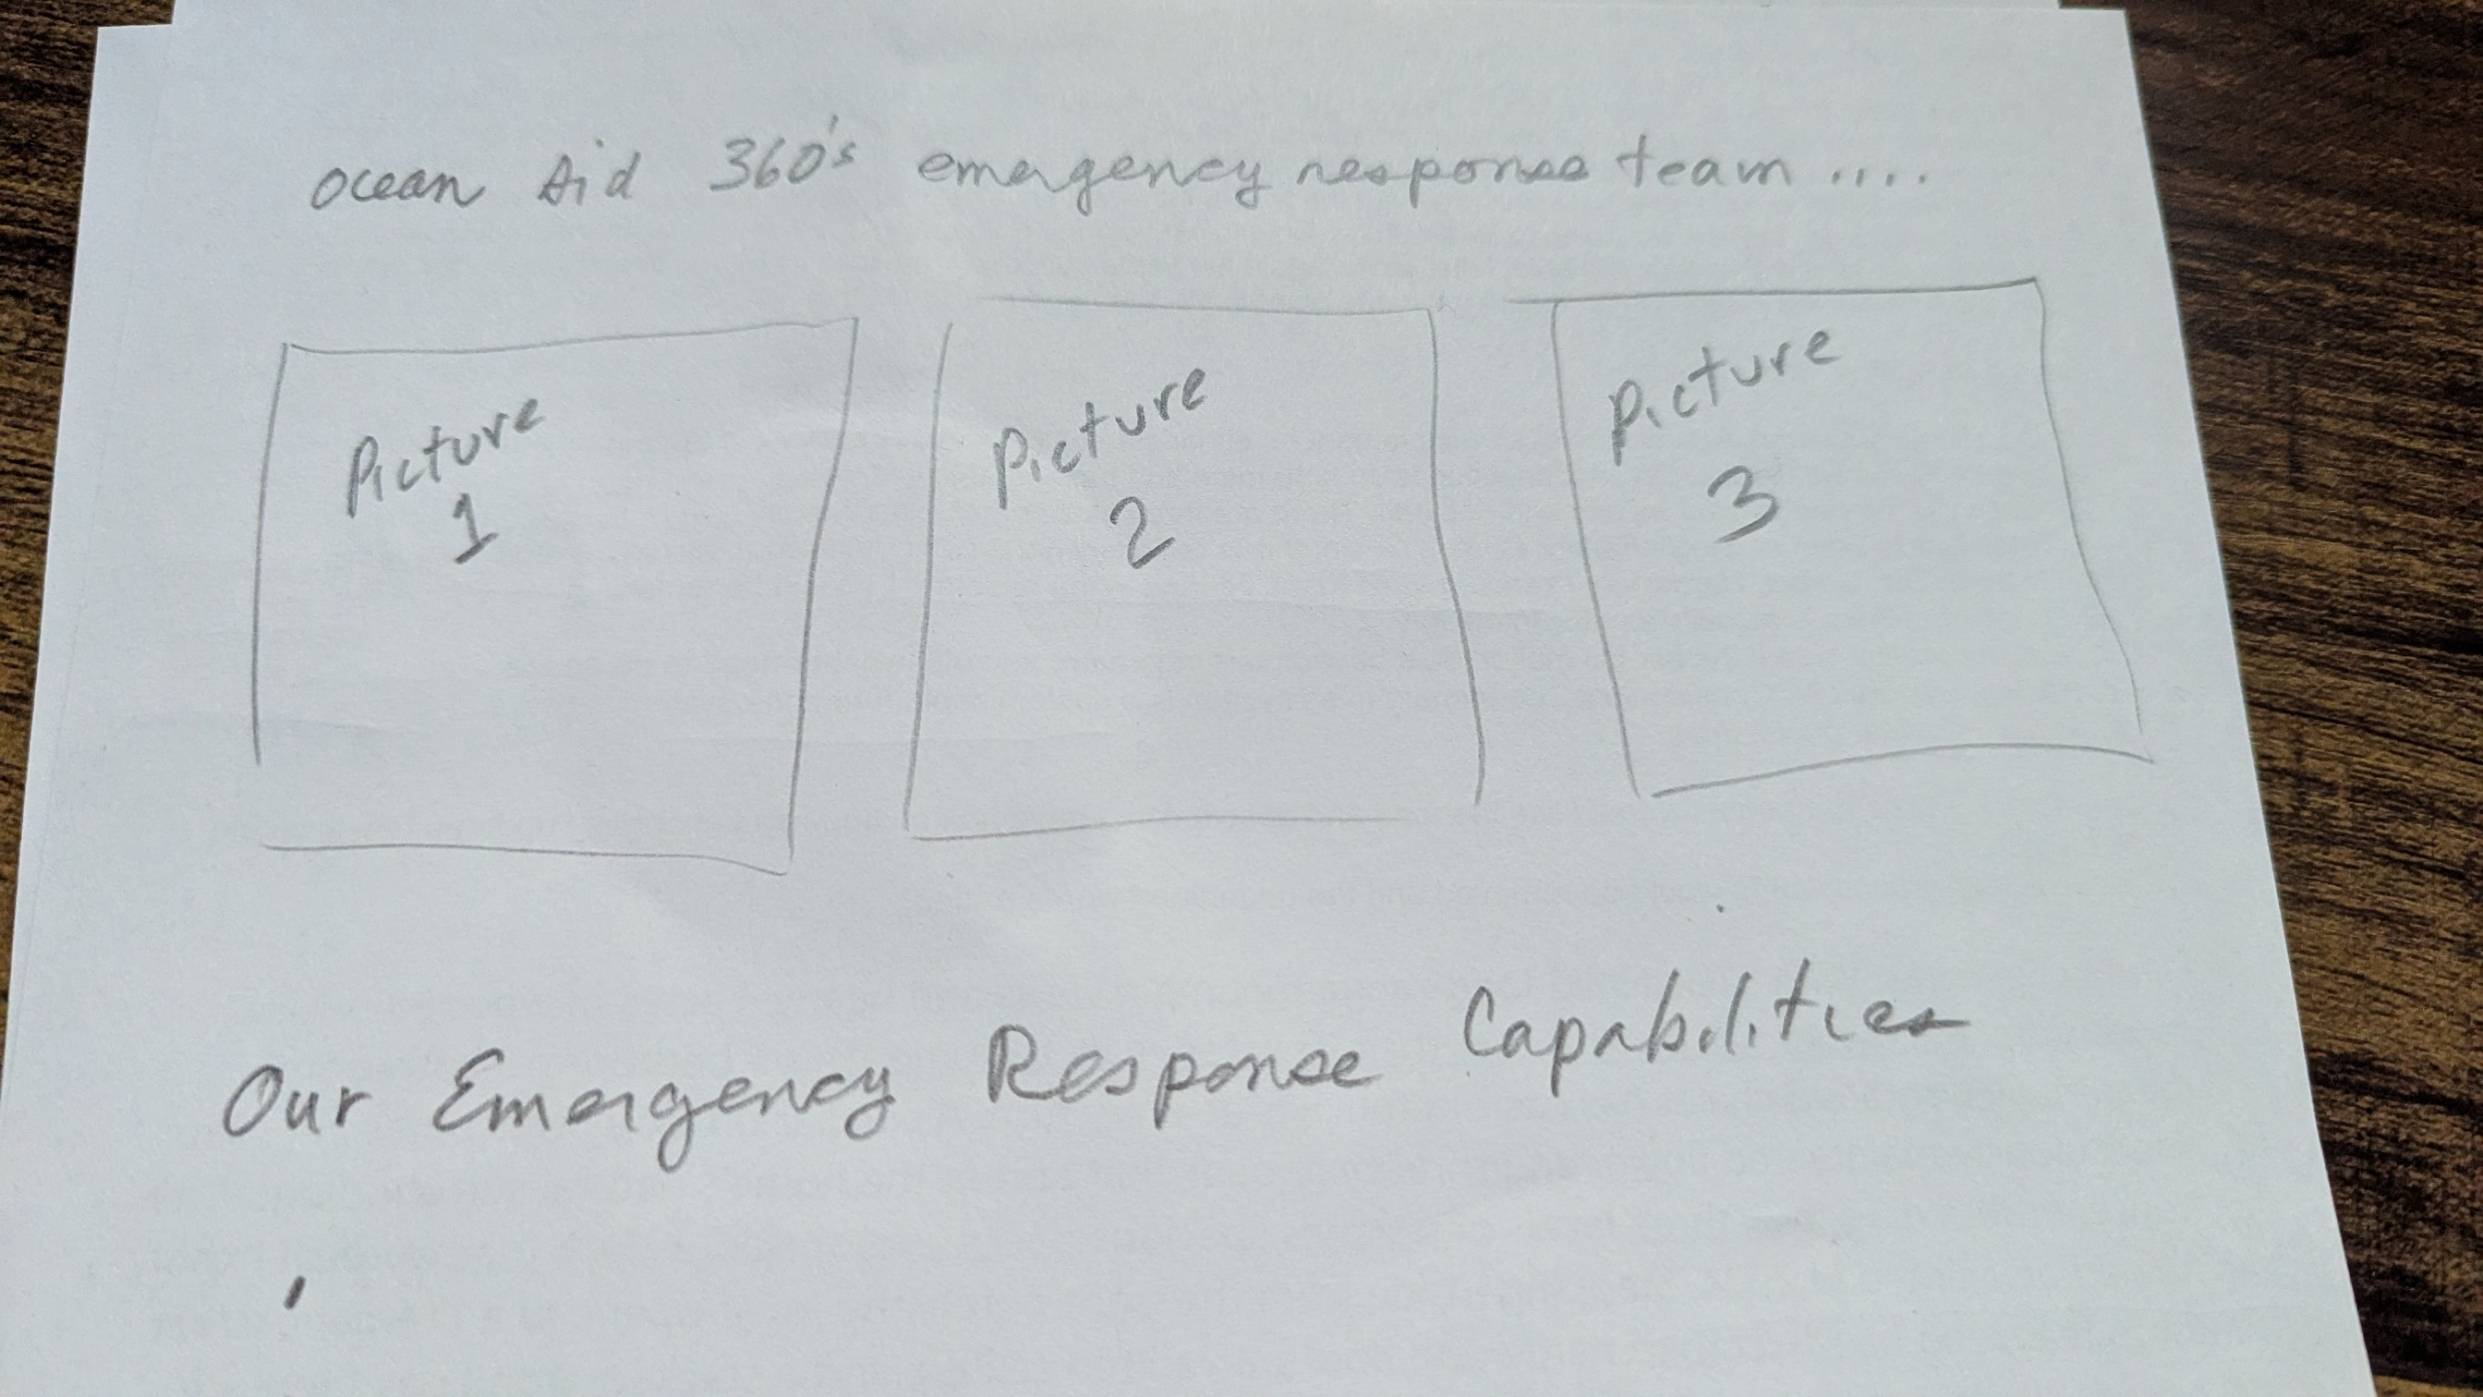 Ocean Aid 360's emergency response team ....
Picture
1
Picture
2
Picture
3
Our Emergency Response Capabilities